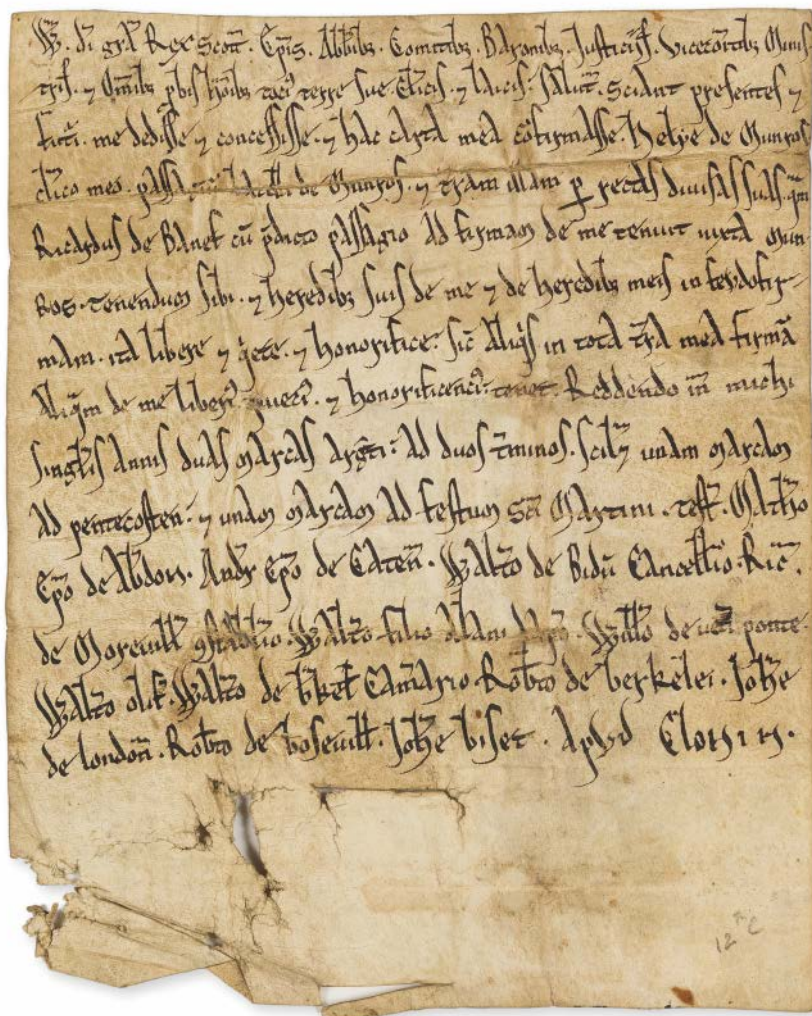 W. di gra Rex Scott. Epis. Abbibz. Comitibz. Baronibz. Justiciis. Vicecomitibz Minis
tris. ⁊ Omnibz pbis hoibz toci terre sue. Clicis. ⁊ laicis: Salut. Sciant presentes ⁊
futi. me dedisse ⁊ concessisse. ⁊ hac carta mea cōfirmasse. Helye de Munros
clico meo. passa de Munros. ⁊ tram illam p rectas divisas suas. qm
Ricardus de Banef cū pdicto passagio ad firmam de me tenuit iuxta Mun
ros. Tenendum sibi. ⁊ heredibz suis de me ⁊ de heredibz meis in feudofir
mam. ita libere ⁊ qete. ⁊ honorifice: sic aliqis in tota tra mea firmā
aliqm de me liberi. ⁊ honorificenci: tenet. Reddendo in michi
singlis annis duas marcas argti: ad duos tminos. scilz unam marcam
ad pentecosten: ⁊ unam marcam ad festum Sci Martini. Test. Matho
Epo de Abdon. Andr Epo de Caten. Walto de Bidū Cancellio. Ric.
de Morevill 9stablio. Walto filio Alani. Willo de ponte.
Walto olif. Walto de bket Camario. Robto de berkelei. Johe
de londoñ. Robto de bosevill. Johe biset. Apud Clonin.
12th C